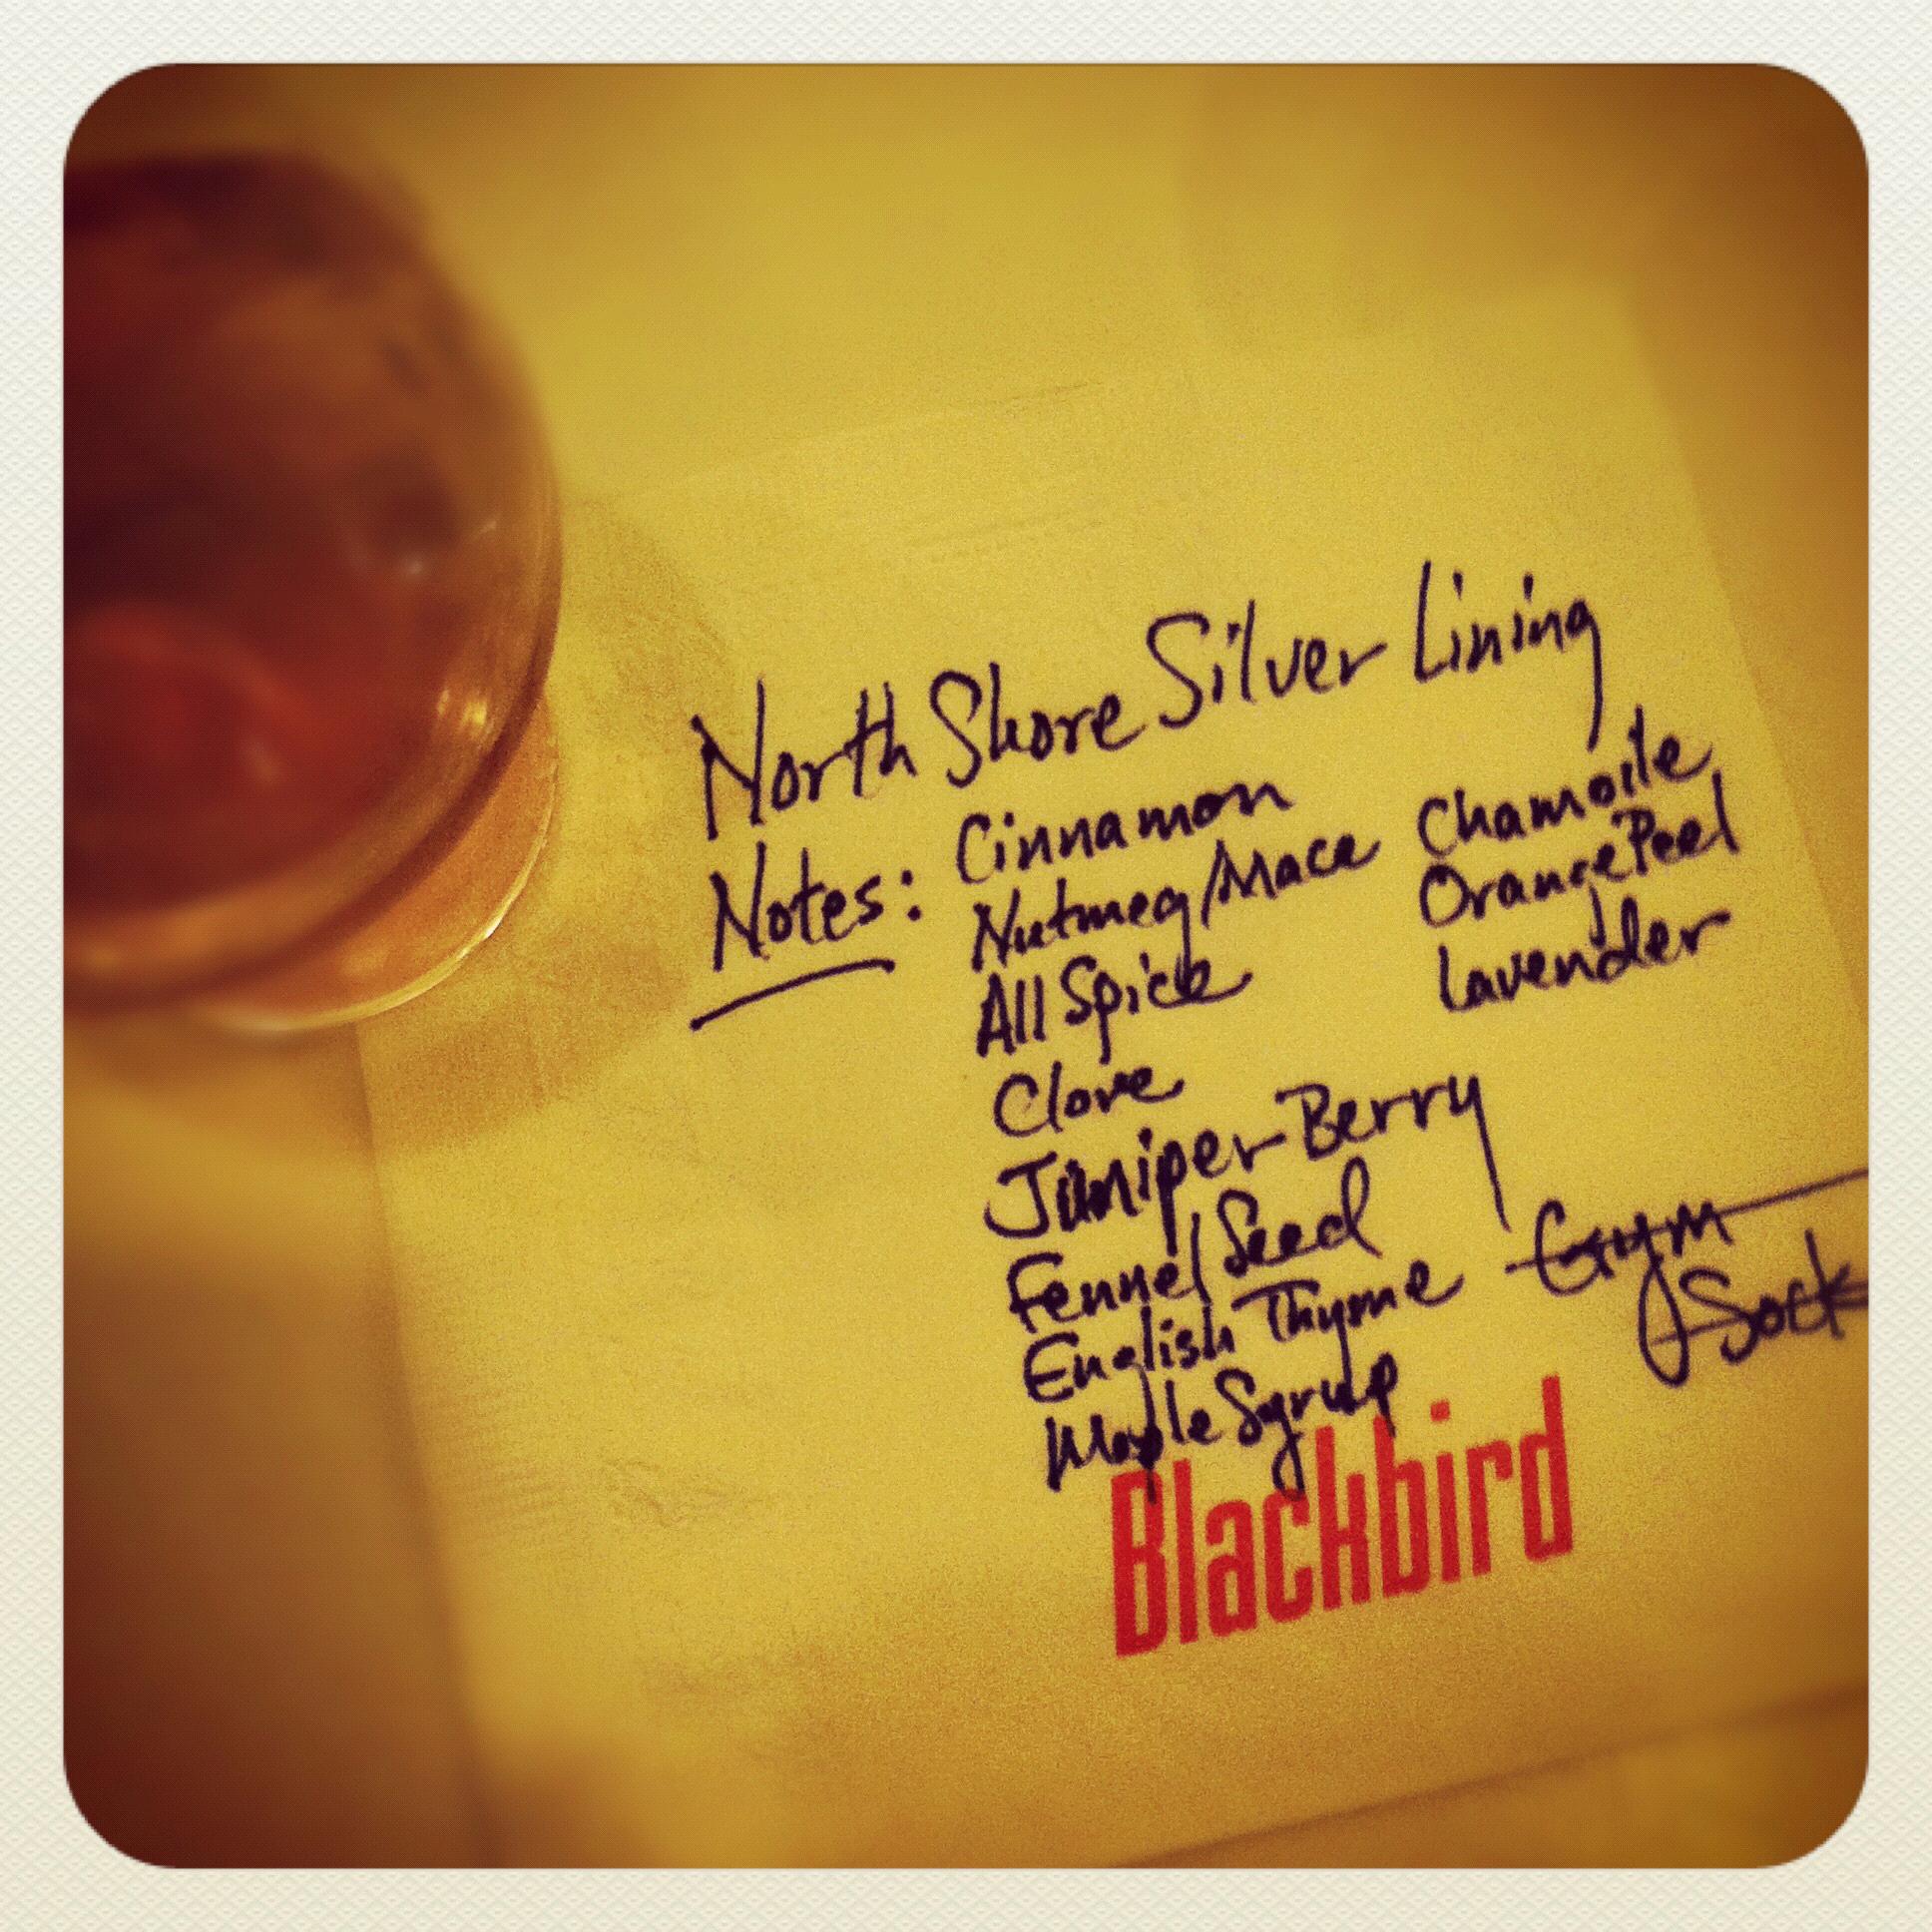 North Shore Silver Lining
Notes: Cinnamon
Nutmeg/Mace
All Spice
Clove
Juniper Berry
Fennel Seed
English Thyme
Maple Syrup
Chamoile
Orange Peel
Lavender
Gym
Sock
Blackbird